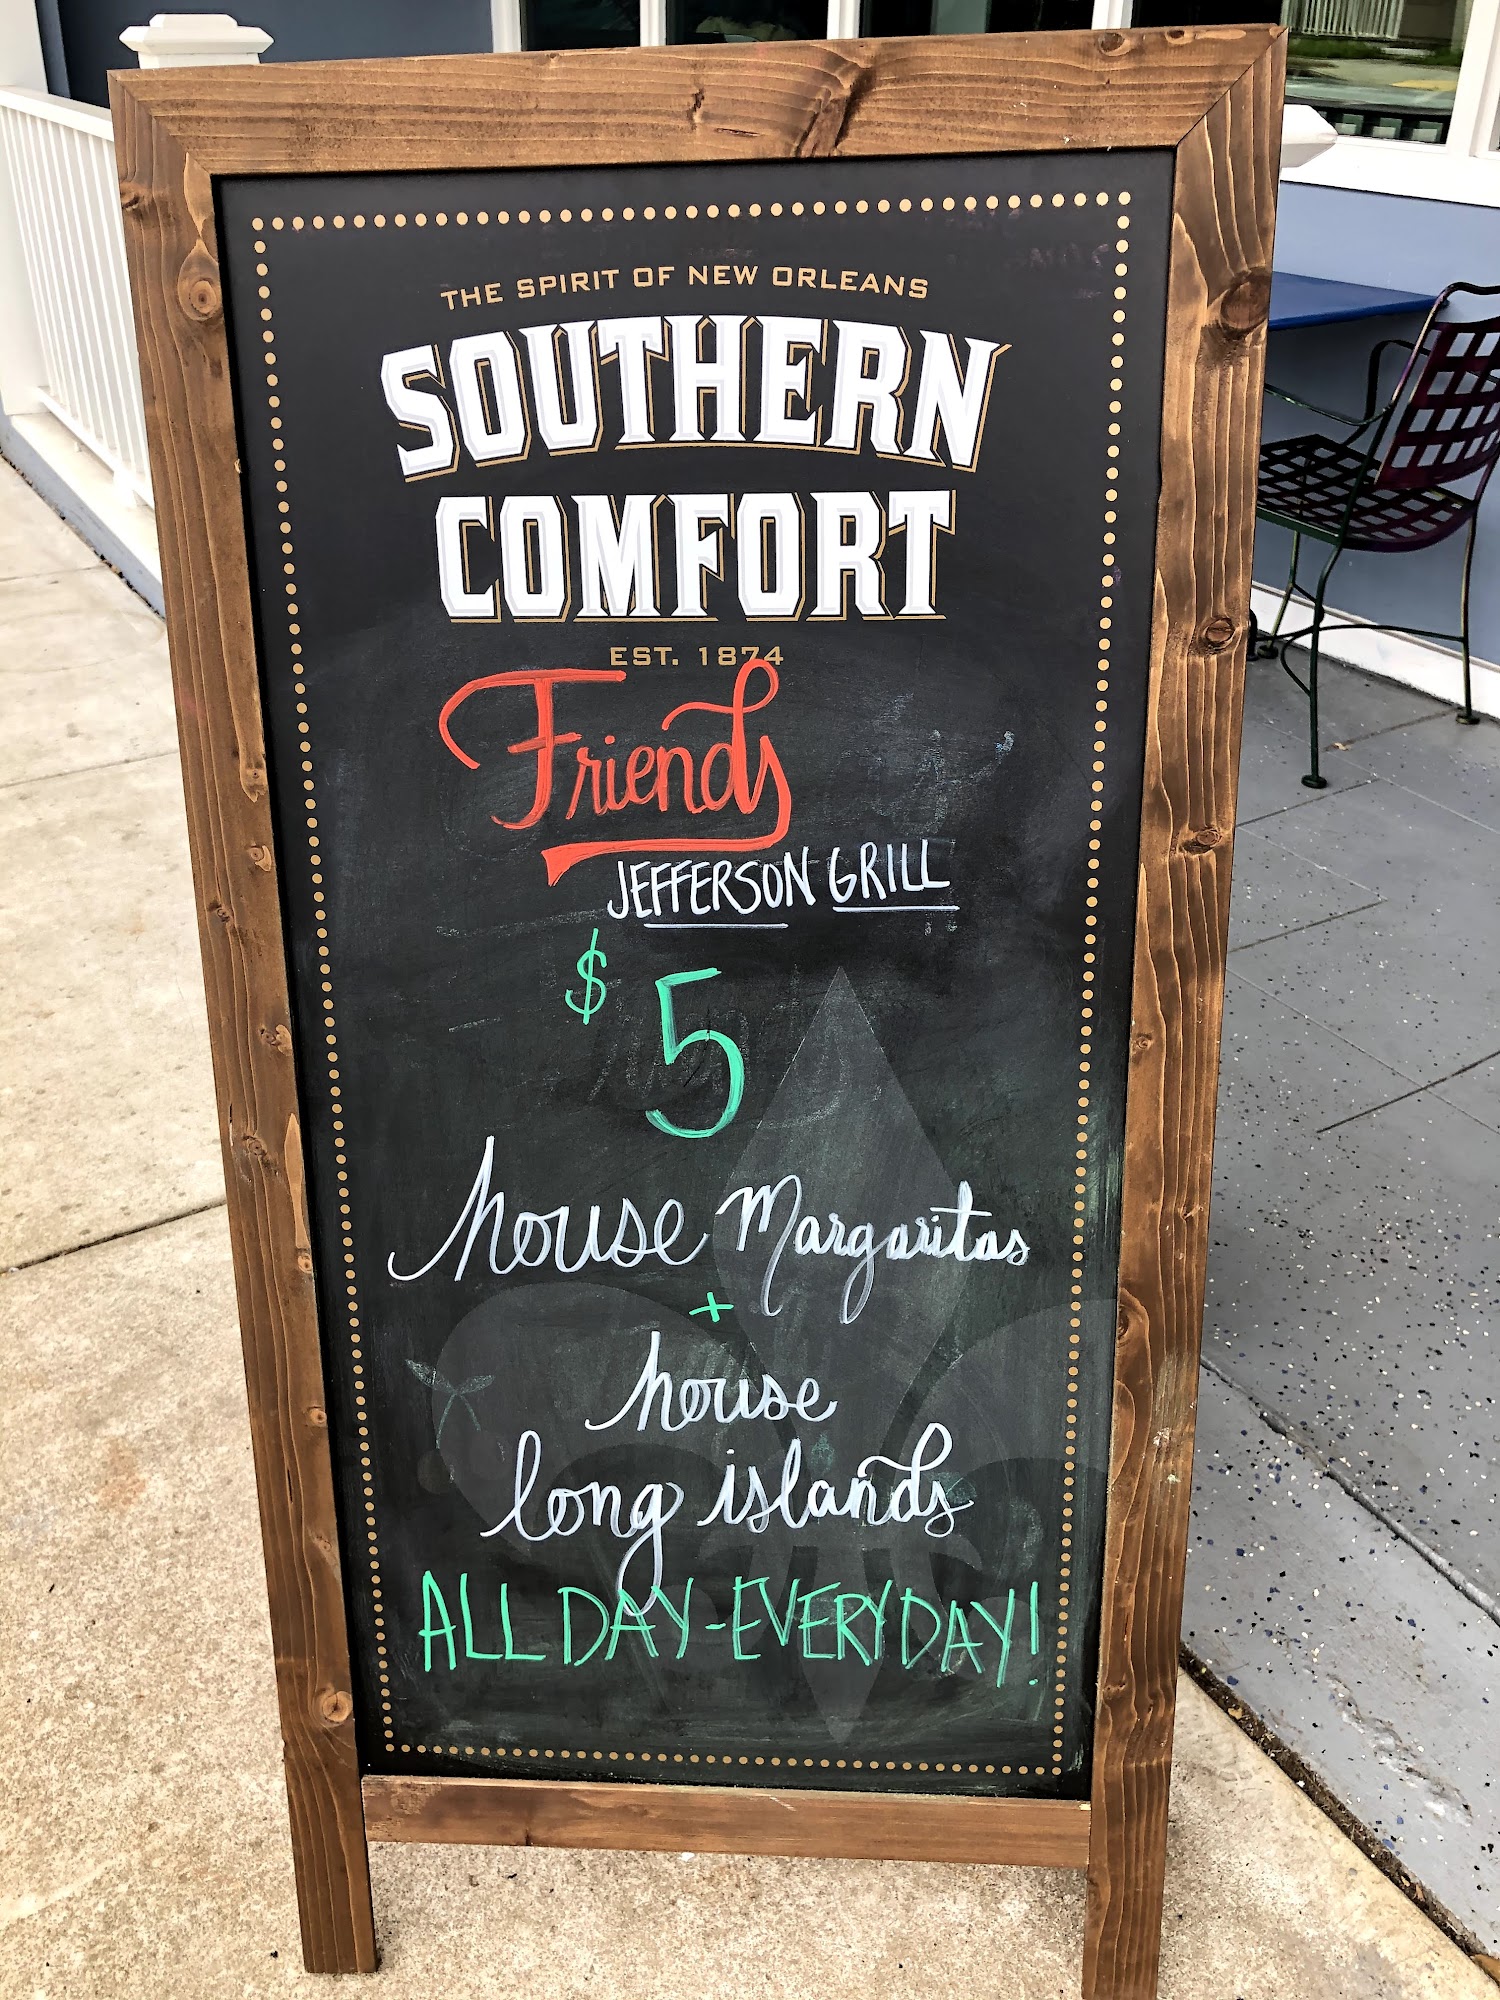 THE SPIRIT OF NEW ORLEANS
SOUTHERN
COMFORT
EST. 1874
Friends
JEFFERSON GRILL
$5
house Margaritas
+
house
long islands
ALL DAY-EVERYDAY!